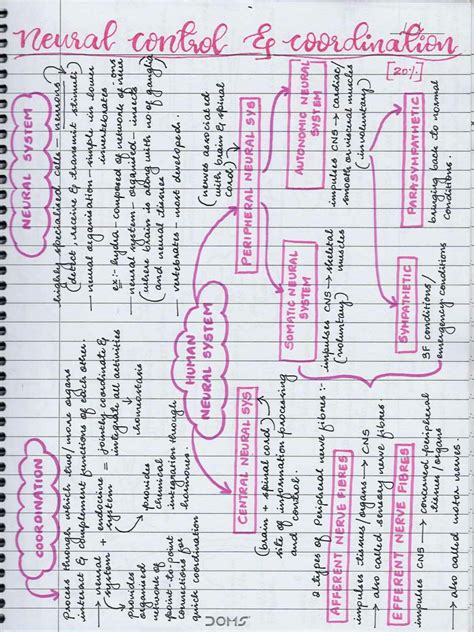 Neural control & coordination
[20%]
COORDINATION
process through which two/more organs
interact & complement functions of each other.
→ neural + endocrine = jointly coordinate &
system system integrate all activities
↳ provides → homeostasis
organised
network of
point-to-point
connections for
quick coordination
↳ provides
chemical
integration through
hormones.
NEURAL SYSTEM
highly specialised cells - neurons
(detect, receive & transmit stimuli)
→ neural organisation - simple in lower
invertebrates
ex:- hydra - composed of network of neurons
neural system - organised - insects
(where brain is along with no of ganglia
and neural tissues)
vertebrates - most developed.
HUMAN
NEURAL SYSTEM
CENTRAL NEURAL SYS
(brain + spinal cord)
site of information processing
and control.
PERIPHERAL NEURAL SYS
(nerves associated
with brain & spinal
cord)
2 types of Peripheral nerve fibres:-
AFFERENT NERVE FIBRES
impulses tissues/organs → CNS
→ also called sensory nerve fibres
EFFERENT NERVE FIBRES
impulses CNS → concerned peripheral
tissues/organs
→ also called motor nerves.
SOMATIC NEURAL
SYSTEM
impulses CNS → skeletal
muscles
(voluntary)
AUTONOMIC NEURAL
SYSTEM
impulses CNS → cardiac/
smooth or visceral muscles
(involuntary)
SYMPATHETIC
SF conditions/
emergency conditions
PARASYMPATHETIC
bringing back to normal
conditions.
DOMS